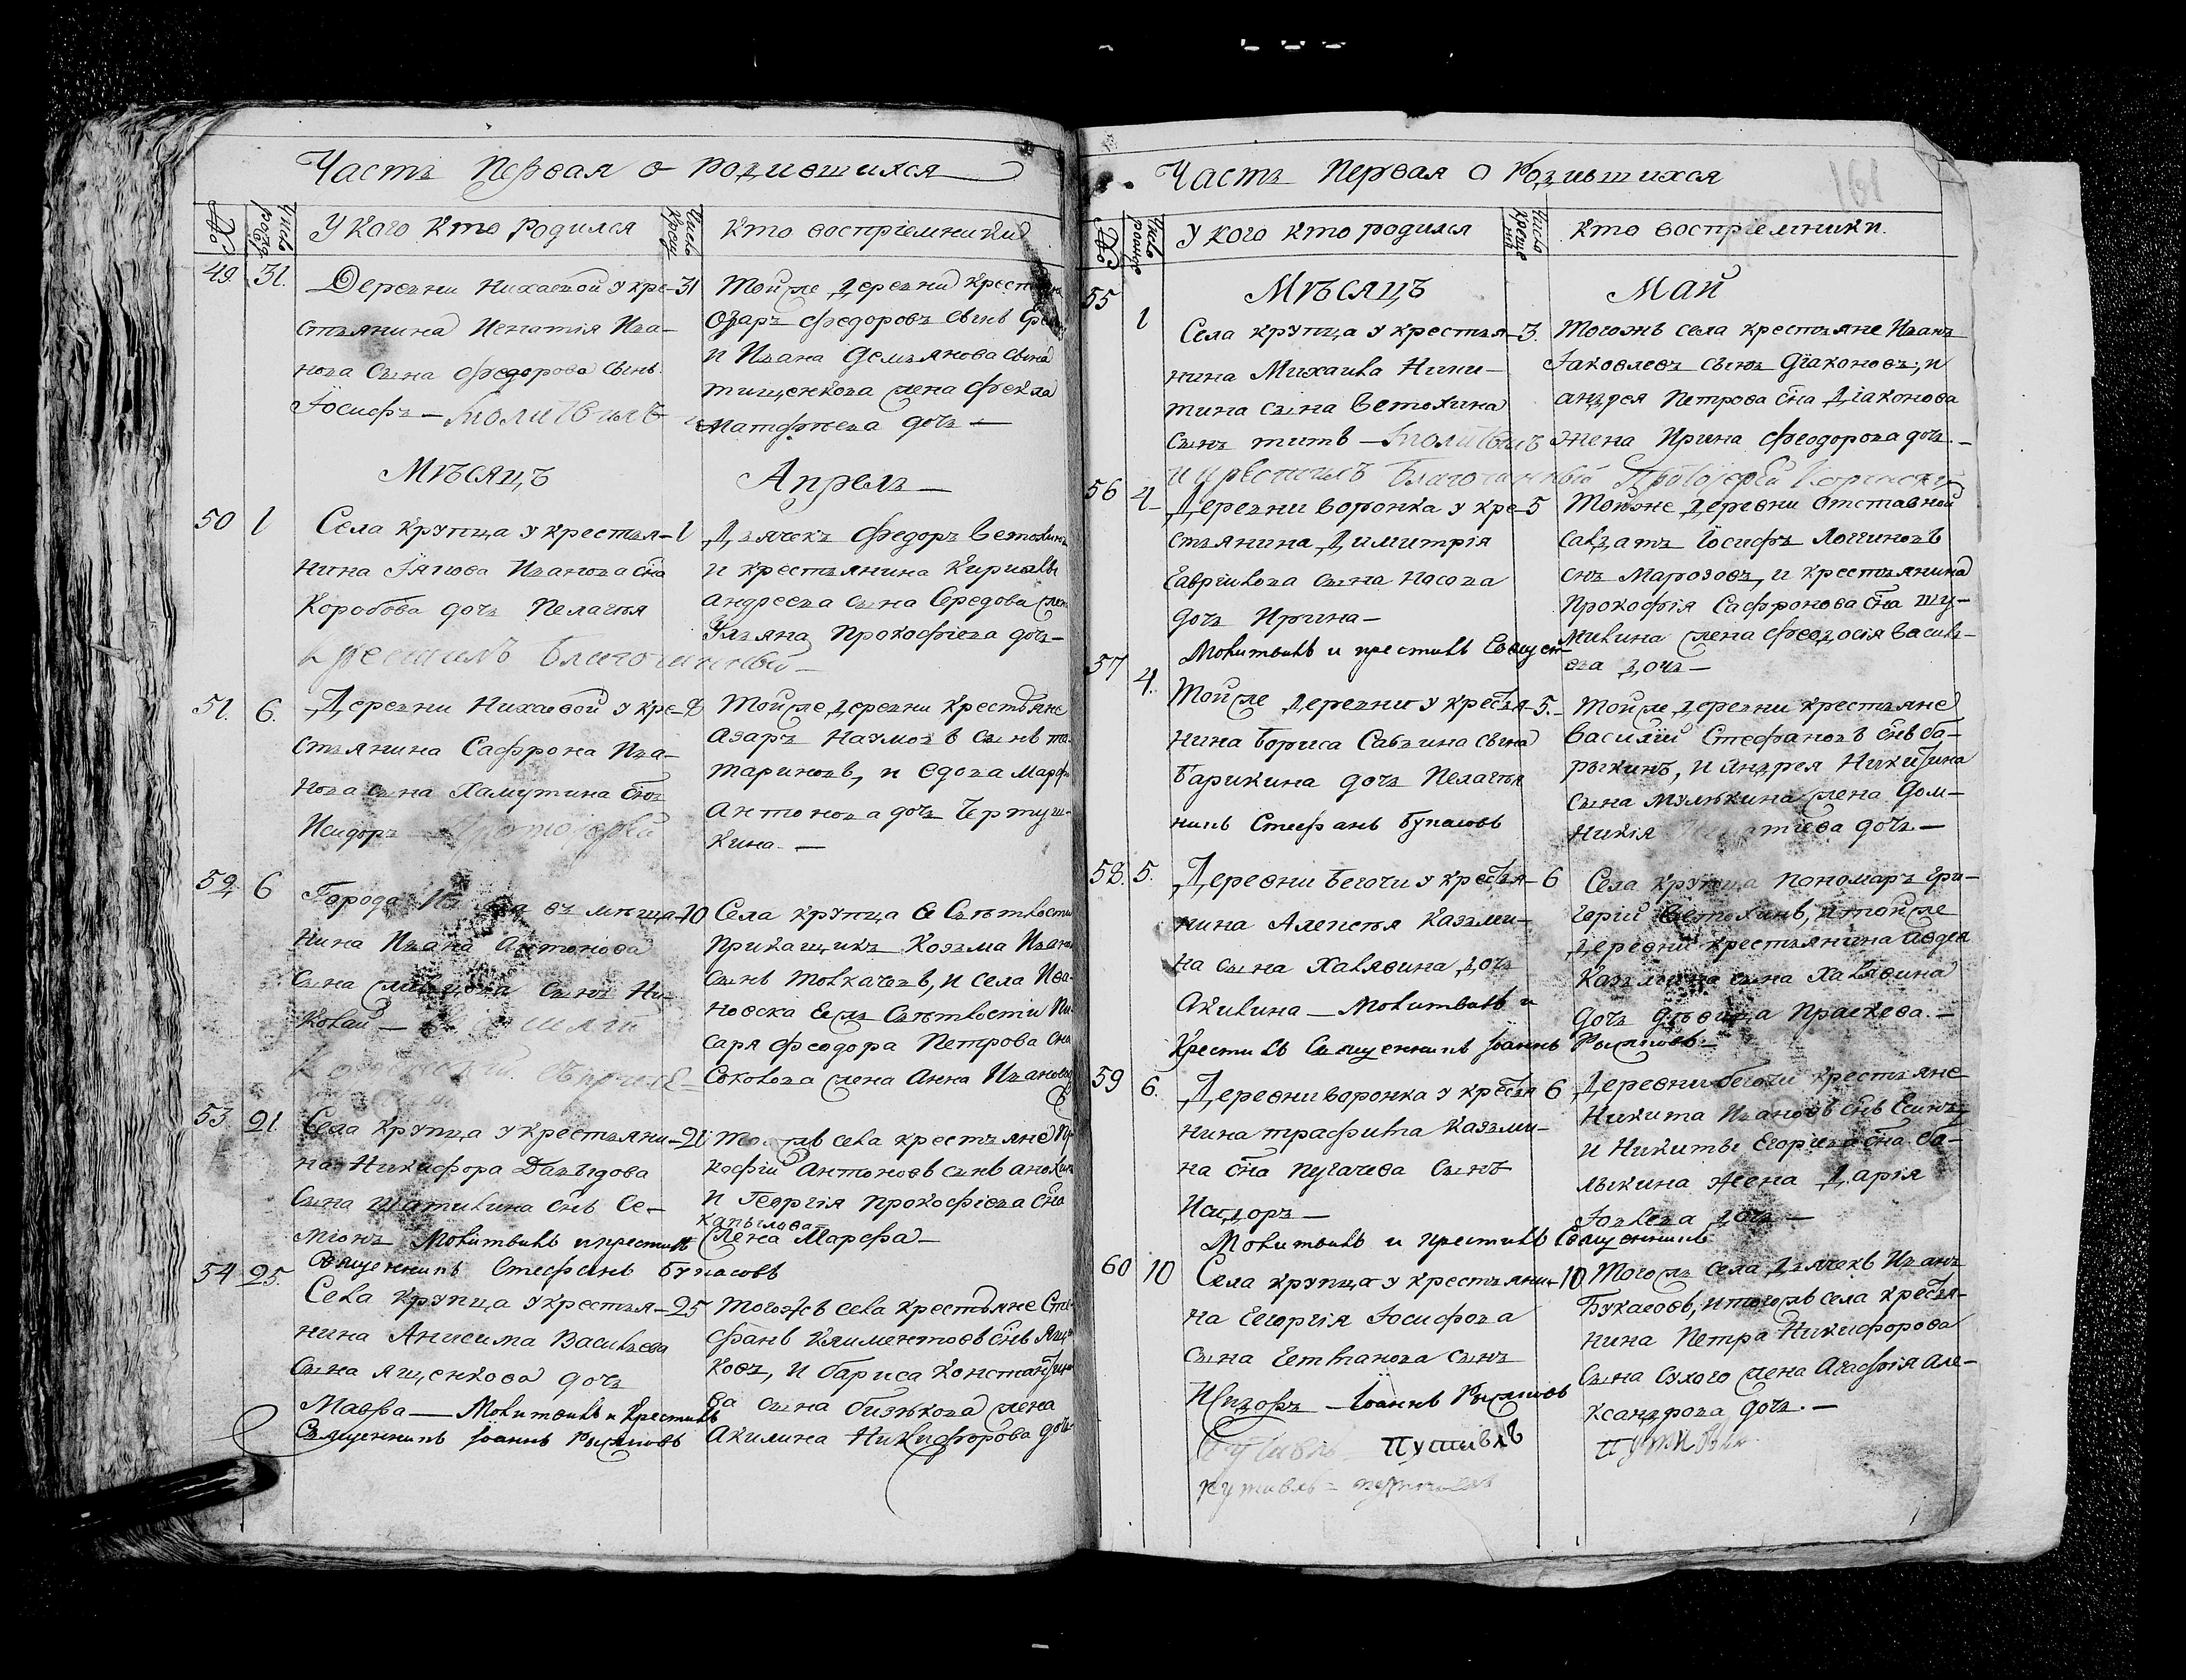 Часть Первая о родившихся
№
Число рожд.
У кого кто родился
Число крещ.
кто воспріемники
49. 31. Деревни Нихаевой у кре- 31
стьянина Игнатія Ива-
нова сына Федорова сынъ
Іосифъ — молитвилъ и
тойже деревни крест
Озаръ Федоровъ сынъ
и Ивана Демьянова сына
тищенкова жена Фекла
Матфѣева дочь —
Мѣсяцъ Апрель —
50 1 Села крупца у крестья- 1
нина Іякова Иванова сна
Коробова дочь Пелагѣя
крестилъ Благочинный —
Дьячекъ Федоръ Ветохинъ
и крестьянина Кирилы
андреева сына Середова жен
Ульяна Прокофіева дочь —
51. 6. Деревни Нихаевой у кре- 8
стьянина Сафрона Ива-
нова сына Хамутина снъ
Исидоръ — Протоіерей
тойже деревни крестьяне
Азаръ Наумовъ сынъ та-
тариновъ, и вдова Марфа
Антонова дочь Чертуш-
кина. —
52 6 Города въ мѣща- 10
нина Ивана Антонова
сына сынъ Ни-
колай —
Села крупца Ея Свѣтлости
прикащикъ Козьма Иванов
сынъ толкачевъ, и села Ива-
новска Ея Свѣтлости пи-
саря Феодора Петрова сна
Соколова жена Анна Иванова
53. 21. Села крупца у крестьяни- 21
на Никифора Давыдова
сына шатилина снъ Се-
міонъ Молитвилъ и крестилъ
Священникъ Стефанъ Букасовъ
тогожъ села крестьяне Пр
кофій Антоновъ сынъ анохин
и Георгія Прокофіева сна
капылова —
жена Марфа —
54 25. Села крупца у крестья- 25
нина Анисима Васильева
сына ященкова дочь
Мавра — Молитвилъ и крестилъ
Священникъ Іоаннъ
тогожъ села крестьяне Сте-
фанъ Климентовъ снъ Ящен
ковъ, и бариса Константино
ва сына бизюкова жена
Акилина Никифорова дочь
Часть Первая о Родившихся
161
№
Число рожде
У кого кто родился
Число креще нія
кто воспріемники.
Мѣсяцъ Май
55 1 Села крупца у крестья- 3.
нина Михаила Ники-
тина сына Ветохина
сынъ титъ — молитвилъ
и крестилъ Благочинный Протоіерей
Тогожъ села крестьяне Иванъ
Іаковлевъ сынъ Діаконовъ, и
андрея Петрова сна Діаконова
жена Ирина Феодорова дочь —
56 4 Деревни воронка у кре- 5
стьянина Димитрія
Гаврилова сына Носова
дочь Ирина —
Молитвилъ и крестилъ Священ
Тойже деревни Отставной
салдатъ Іосифъ Логгиновъ
снъ Марозовъ, и крестьянина
Прокофія Сафронова сна шу-
милина жена Феодосія Василь-
ева дочь —
57 4. Тойже деревни у крестья- 5.
нина Бориса Савина сына
Барикина дочь Пелагѣя
никъ Стефанъ Букасовъ
тойже деревни крестьяне
Василій Стефановъ снъ ба-
рыкинъ, и Андрея Никитина
сына жена Дом-
никія дочь —
58. 5. Деревни бегочи у крестья- 6
нина Алексѣя Казьми-
на сына Халявина дочь
Акилина — Молитвилъ и
Крестилъ Священникъ Іоаннъ
Села крупца пономарь Гри-
горій Ветохинъ, и тойже
деревни крестьянина Авдея
Казьмина сына Халявина
дочь дѣвица Праскева. —
59 6. Деревни воронка у крестья 6
нина трафима Казьми-
на сна пугачева сынъ
Исидоръ —
Молитвилъ и крестилъ Священникъ
Деревни бегочи крестьяне
Никита Ивановъ снъ Есинъ,
и Никиты Егорьева сна ба-
лыкина жена Дарія
Іовлева дочь —
60 10 Села крупца у крестьяни- 10
на Георгія Іосифова
сына сынъ
Исидоръ — Іоаннъ
Тогожъ села Дьячекъ Иванъ
Букасовъ, и тогожъ села крестья-
нина Петра Никифорова
сына Сухого жена Агафія Але-
ксандрова дочь. —
Путивль Путивлъ Путивля
путивль — путивля